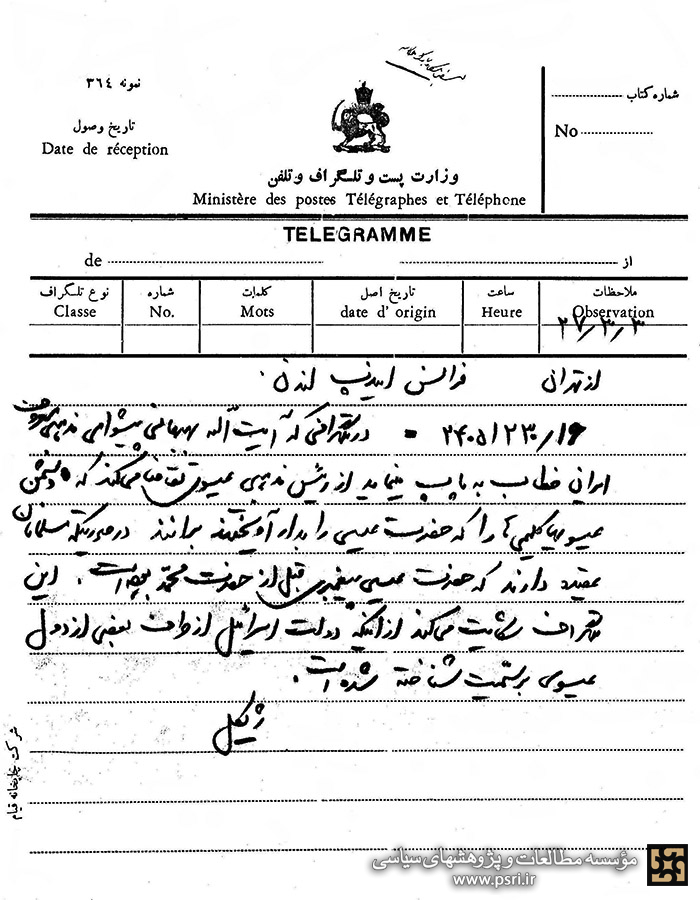 نمونه ۳٦٤
شماره کتاب
تاریخ وصول
Date de réception
No
وزارت پست و تلگراف و تلفن
Ministère des postes Télégraphes et Téléphone
TELEGRAMME
de از
نوع تلگراف شماره کلمات تاریخ اصل ساعت ملاحظات
Classe No. Mots date d' origin Heure Observation
۲۷/۳/۳
از تهران فرانس لندن
۲۴۰۵/۲۳۰/۱۶ = در تلگرافی که آیت اله بهبهانی پیشوای مذهبی معروف
ایرانی خطاب به پاپ مینماید از رئیس مذهبی عیسوی تقاضا میکند که دشمن
کلیمی‌ها را که حضرت عیسی را بدار آویختند برانند در صورتیکه مسلمانان
عقیده دارند که حضرت عیسی پیغمبری قبل از حضرت محمد بوده است. این
تلگراف شکایت میکند از اینکه دولت اسرائیل از طرف بعضی از دول
عیسوی برسمیت شناخته شده است.
ژیکل
شرکت چاپخانه قیام
مؤسسه مطالعات و پژوهشهای سیاسی
www.psri.ir